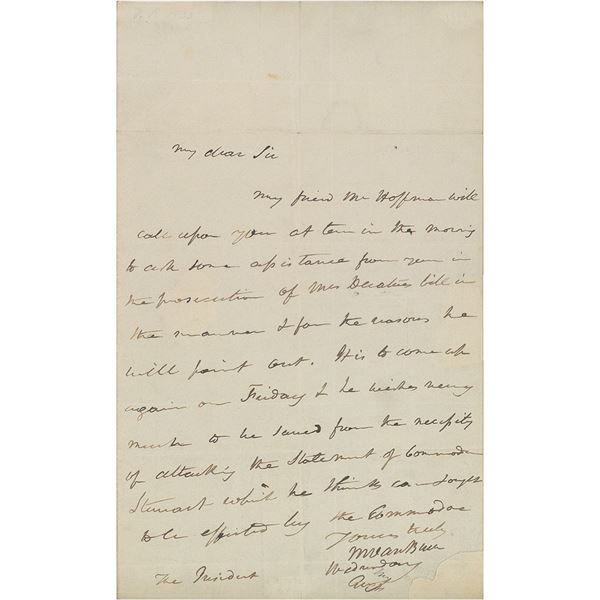 My dear Sir
My friend Mr Hoffman will
call upon you at ten in the morning
to ask some assistance from you in
the prosecution of Mrs Decaturs bill in
the manner & for the reasons he
will point out. It is to come up
again on Friday & he wishes very
much to be saved from the necessity
of attacking the Statement of Commodore
Stewart which he thinks can
to be effected by the Commodore
Yours truly
MVanBuren
Wednesday
The President